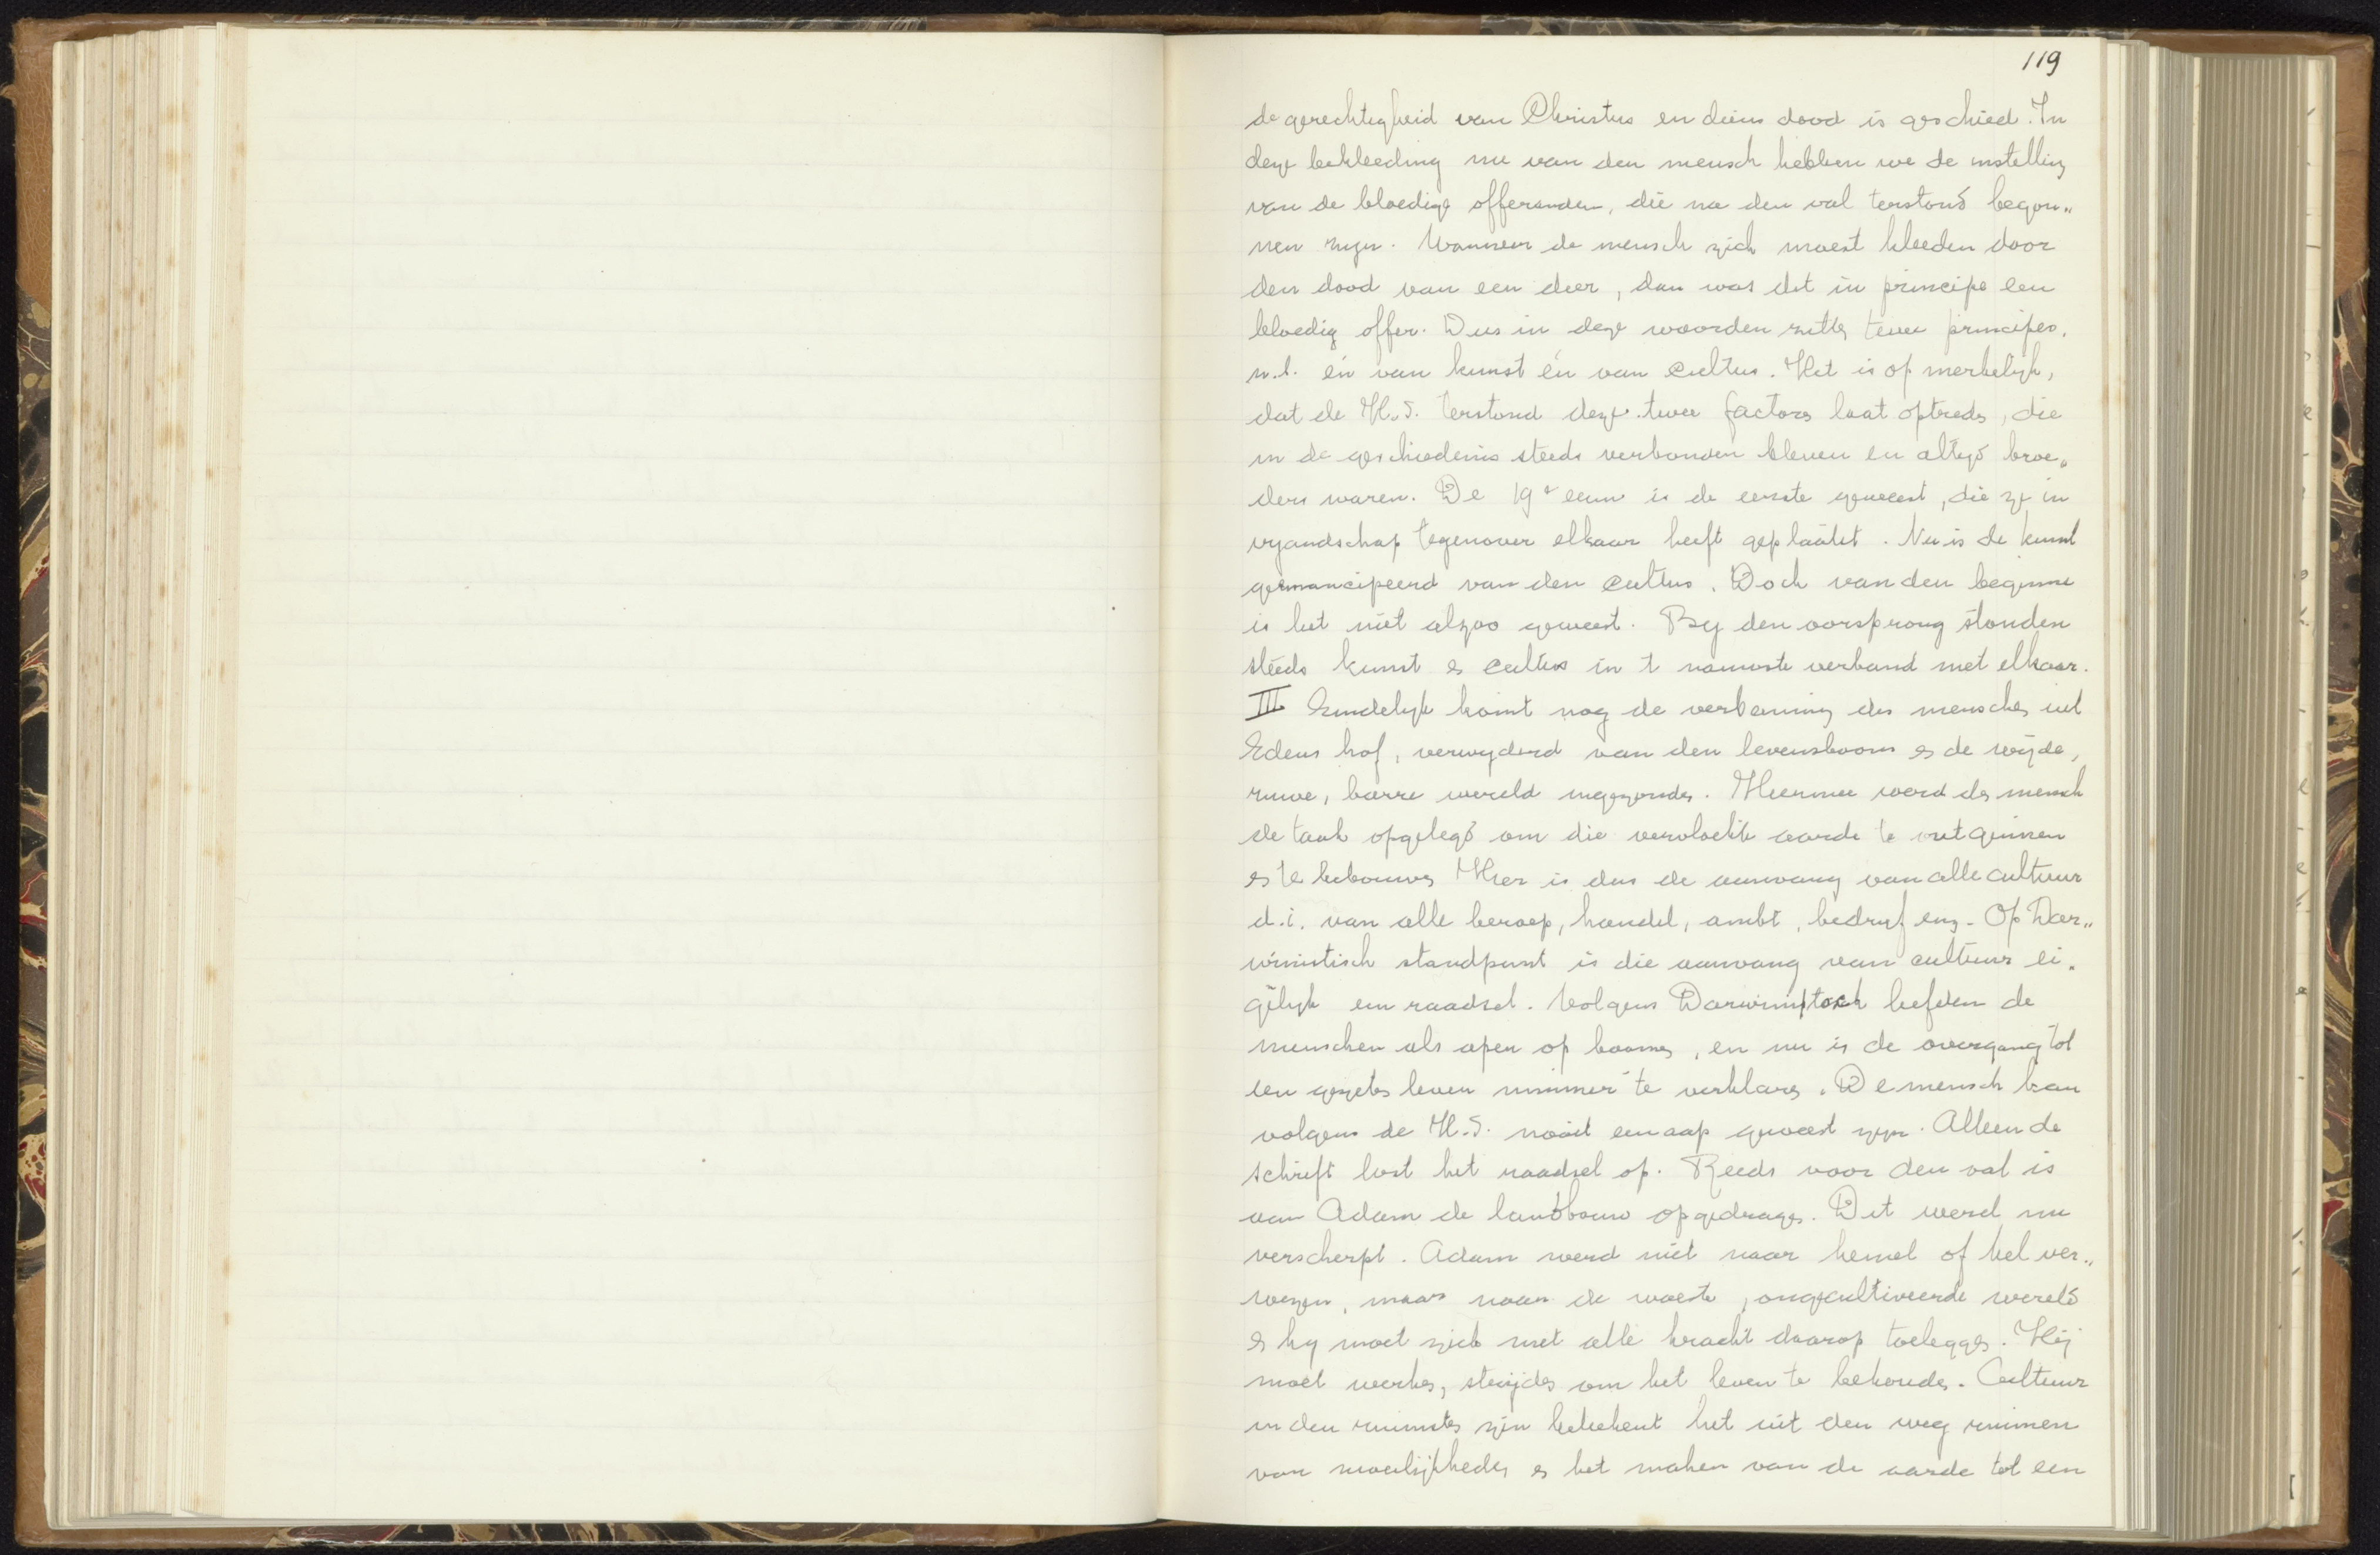 119
de gerechtigheid van Christus en diens dood is geschied. In
deze bekleeding nu van den mensch hebben we de instelling
van de bloedige offeranden, die na den val terstond begon„
nen zijn. Wanneer de mensch zich moest kleeden door
den dood van een dier, dan was dat in principe een
bloedig offer. Dus in deze woorden zitten twee principes,
n.l. én van kunst én van cultus. Het is opmerkelijk,
dat de H.S. terstond deze twee factors laat optreden, die
in de geschiedenis steeds verbonden bleven en altijd broe„
ders waren. De 19e eeuw is de eerste geweest, die ze in
vyandschap tegenover elkaar heeft geplaatst. Nu is de kunst
geëmancipeerd van den cultus. Doch van den beginne
is het niet alzoo geweest. By den oorsprong stonden
steeds kunst en cultus in 't nauwste verband met elkaar.
III Eindelyk komt nog de verbanning des menschen uit
Edens hof, verwyderd van den levensboom en de wijde,
ruwe, barre wereld ingezonden. Hiermee werd den mensch
de taak opgelegd om die vervloekte aarde te ontginnen
en te bebouwen Hier is dus de aanvang van alle cultuur
d.i. van alle beroep, handel, ambt, bedryf enz. Op Dar„
winistisch standpunt is die aanvang van cultuur ei„
gelyk een raadsel. Volgens Darwin toch leefden de
menschen als apen op boomen, en nu is de overgang tot
een gezeten leven nimmer te verklaren. De mensch kan
volgens de H.S. nooit een aap geweest zyn. Alleen de
schrift lost het raadsel op. Reeds voor den val is
aan Adam de landbouw opgedragen. Dit werd nu
verscherpt. Adam werd niet naar hemel of hel ver„
wezen, maar naar de woeste, ongecultiveerde wereld
en hy moet zich met alle kracht daarop toeleggen. Hij
moet werken, strijden om het leven te behouden. Cultuur
in den ruimsten zin beteekent het uit den weg ruimen
van moeilijkheden en het maken van de aarde tot een